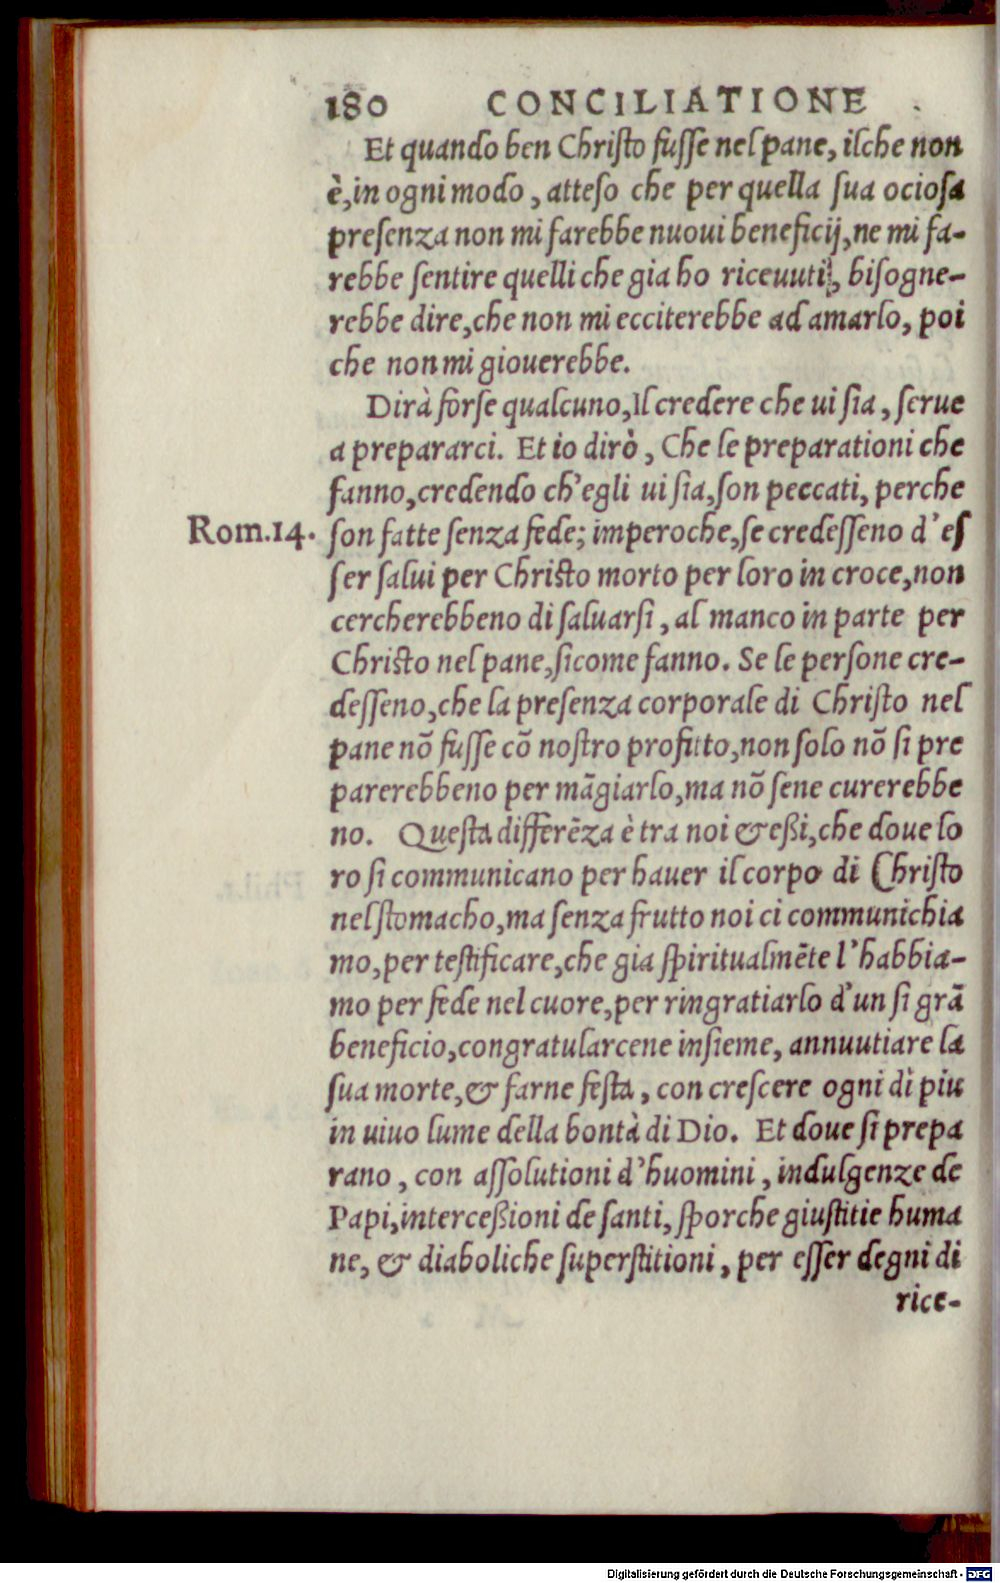 180 CONCILIATIONE
Et quando ben Chriſto fuſſe nel pane, ilche non
è, in ogni modo, atteſo che per quella ſua ocioſa
preſenza non mi farebbe nuoui beneficij, ne mi fa-
rebbe ſentire quelli che gia ho riceuuti, biſogne-
rebbe dire, che non mi ecciterebbe ad amarlo, poi
che non mi giouerebbe.
Dirà forſe qualcuno, Il credere che ui ſia, ſerue
a prepararci. Et io dirò, Che le preparationi che
fanno, credendo ch'egli ui ſia, ſon peccati, perche
Rom.14. ſon fatte ſenza fede; imperoche, ſe credeſſeno d'eſ
ſer ſalui per Chriſto morto per loro in croce, non
cercherebbeno di ſaluarſi, al manco in parte per
Chriſto nel pane, ſicome fanno. Se le perſone cre-
deſſeno, che la preſenza corporale di Chriſto nel
pane nõ fuſſe cõ noſtro profitto, non ſolo nõ ſi pre
parerebbeno per mãgiarlo, ma nõ ſene curerebbe
no. Queſta differẽza è tra noi & eßi, che doue lo
ro ſi communicano per hauer il corpo di Chriſto
nel ſtomacho, ma ſenza frutto noi ci communichia
mo, per teſtificare, che gia ſpiritualmẽte l'habbia-
mo per fede nel cuore, per ringratiarlo d'un ſi grã
beneficio, congratularcene inſieme, annuutiare la
ſua morte, & farne feſta, con creſcere ogni dì piu
in uiuo lume della bontà di Dio. Et doue ſi prepa
rano, con aſſolutioni d'huomini, indulgenze de
Papi, interceßioni de ſanti, ſporche giuſtitie huma
ne, & diaboliche ſuperſtitioni, per eſſer degni di
rice-
Digitalisierung gefördert durch die Deutsche Forschungsgemeinschaft - DFG